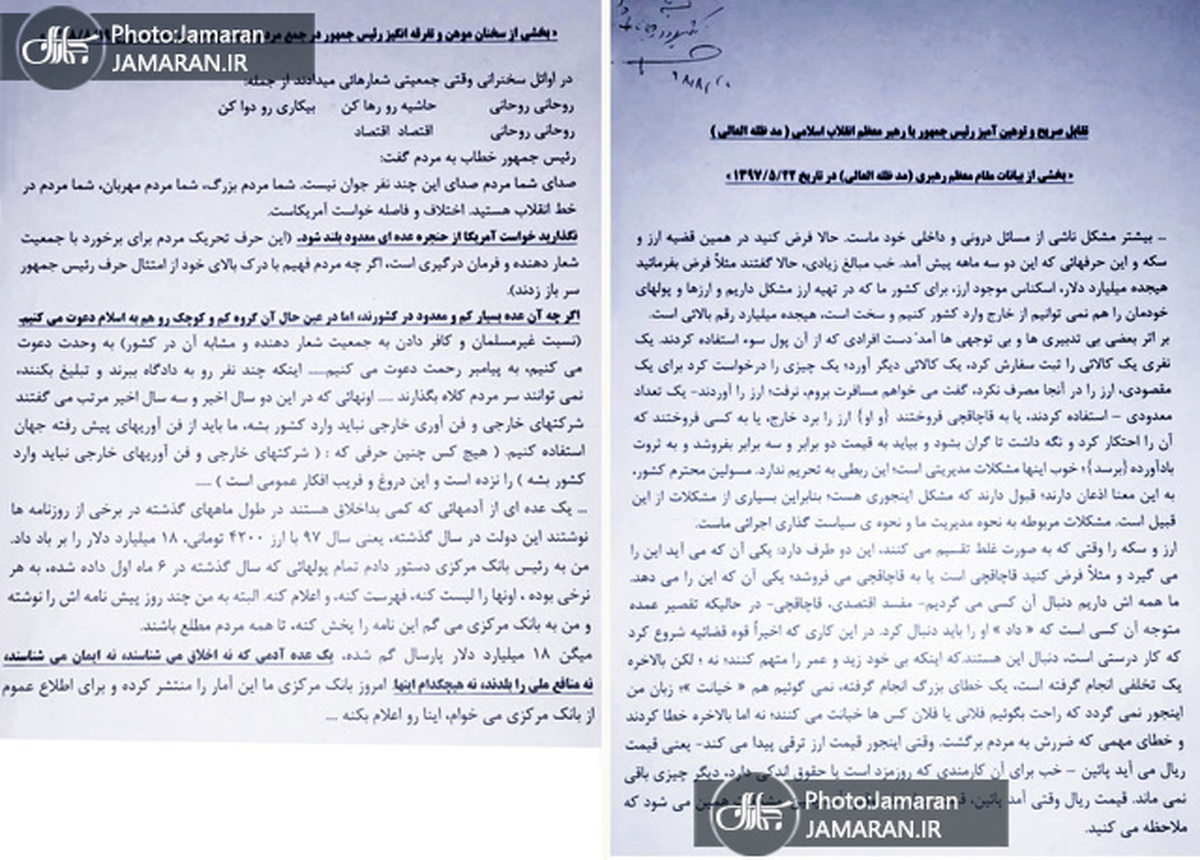 Photo:Jamaran
JAMARAN.IR
تقابل صریح و توهین آمیز رئیس جمهور با رهبر معظم انقلاب اسلامی ( مد ظله العالی )
« بخشی از بیانات مقام معظم رهبری (مد ظله العالی) در تاریخ ۱۳۹۷/۵/۲۲ »
_ بیشتر مشکل ناشی از مسائل درونی و داخلی خود ماست. حالا فرض کنید در همین قضیه ارز و
سکه و این حرفهائی که این دو سه ماهه پیش آمد. خب مبالغ زیادی، حالا گفتند مثلاً فرض بفرمائید
هیجده میلیارد دلار، اسکناس موجود ارز، برای کشور ما که در تهیه ارز مشکل داریم و ارزها و پولهای
خودمان را هم نمی توانیم از خارج وارد کشور کنیم و سخت است، هیجده میلیارد رقم بالائی است.
بر اثر بعضی بی تدبیری ها و بی توجهی ها آمد دست افرادی که از آن پول سوء استفاده کردند. یک
نفری یک کالائی را ثبت سفارش کرد، یک کالائی دیگر آورد؛ یک چیزی را درخواست کرد برای یک
مقصودی، ارز را در آنجا مصرف نکرد، گفت می خواهم مسافرت بروم، نرفت؛ ارز را آوردند- یک تعداد
معدودی – استفاده کردند، یا به قاچاقچی فروختند {و او} ارز را برد خارج، یا به کسی فروختند که
آن را احتکار کرد و نگه داشت تا گران بشود و بیاید به قیمت دو برابر و سه برابر بفروشد و به ثروت
بادآورده {برسد}؛ خوب اینها مشکلات مدیریتی است؛ این ربطی به تحریم ندارد. مسولین محترم کشور،
به این معنا اذعان دارند؛ قبول دارند که مشکل اینجوری هست؛ بنابراین بسیاری از مشکلات از این
قبیل است. مشکلات مربوطه به نحوه مدیریت ما و نحوه ی سیاست گذاری اجرائی ماست.
ارز و سکه را وقتی که به صورت غلط تقسیم می کنند، این دو طرف دارد: یکی آن که می آید این را
می گیرد و مثلاً فرض کنید قاچاقچی است یا به قاچاقچی می فروشد؛ یکی آن که این را می دهد.
ما همه اش داریم دنبال آن کسی می گردیم- مفسد اقتصدی، قاچاقچی- در حالیکه تقصیر عمده
متوجه آن کسی است که « داد » او را باید دنبال کرد. در این کاری که اخیراً قوه قضائیه شروع کرد
که کار درستی است، دنبال این هستند.که اینکه بی خود زید و عمر را متهم کنند؛ نه ؛ لکن بالاخره
یک تخلفی انجام گرفته است، یک خطای بزرگ انجام گرفته، نمی گوئیم هم « خیانت »؛ زبان من
اینجور نمی گردد که راحت بگوئیم فلانی یا فلان کس ها خیانت می کنند؛ نه اما بالاخره خطا کردند
و خطای مهمی که ضررش به مردم برگشت. وقتی اینجور قیمت ارز ترقی پیدا می کند- یعنی قیمت
ریال می آید پائین – خب برای آن کارمندی که روزمزد است یا حقوق اندکی دارد، دیگر چیزی باقی
نمی ماند. قیمت ریال وقتی آمد پائین، همین می شود که
ملاحظه می کنید.
Photo:Jamaran
JAMARAN.IR
« بخشی از سخنان موهن و تفرقه انگیز رئیس جمهور در جمع
در اوائل سخنرانی وقتی جمعیتی شعارهائی میدادند از جمله:
روحانی روحانی حاشیه رو رها کن بیکاری رو دوا کن
روحانی روحانی اقتصاد اقتصاد
رئیس جمهور خطاب به مردم گفت:
صدای شما مردم صدای این چند نفر جوان نیست. شما مردم بزرگ، شما مردم مهربان، شما مردم در
خط انقلاب هستید. اختلاف و فاصله خواست آمریکاست.
نگذارید خواست آمریکا از حنجره عده ای معدود بلند شود. (این حرف تحریک مردم برای برخورد با جمعیت
شعار دهنده و فرمان درگیری است، اگر چه مردم فهیم با درک بالای خود از امتثال حرف رئیس جمهور
سر باز زدند).
اگر چه آن عده بسیار کم و معدود در کشورند، اما در عین حال آن گروه کم و کوچک رو هم به اسلام دعوت می کنیم.
(نسبت غیرمسلمان و کافر دادن به جمعیت شعار دهنده و مشابه آن در کشور) به وحدت دعوت
می کنیم، به پیامبر رحمت دعوت می کنیم.... اینکه چند نفر رو به دادگاه ببرند و تبلیغ بکنند،
نمی توانند سر مردم کلاه بگذارند .... اونهائی که در این دو سال اخیر و سه سال اخیر مرتب می گفتند
شرکتهای خارجی و فن آوری خارجی نباید وارد کشور بشه، ما باید از فن آوریهای پیش رفته جهان
استفاده کنیم. ( هیچ کس چنین حرفی که : ( شرکتهای خارجی و فن آوریهای خارجی نباید وارد
کشور بشه ) را نزده است و این دروغ و فریب افکار عمومی است ) ....
... یک عده ای از آدمهائی که کمی بداخلاق هستند در طول ماههای گذشته در برخی از روزنامه ها
نوشتند این دولت در سال گذشته، یعنی سال ۹۷ با ارز ۴۲۰۰ تومانی، ۱۸ میلیارد دلار را بر باد داد.
من به رئیس بانک مرکزی دستور دادم تمام پولهائی که سال گذشته در ۶ ماه اول داده شده، به هر
نرخی بوده ، اونها را لیست کنه، فهرست کنه، و اعلام کنه. البته به من چند روز پیش نامه اش را نوشته
و من به بانک مرکزی می گم این نامه را پخش کنه، تا همه مردم مطلع باشند.
میگن ۱۸ میلیارد دلار پارسال گم شده. یک عده آدمی که نه اخلاق می شناسند، نه ایمان می شناسند،
نه منافع ملی را بلدند، نه هیچکدام اینها. امروز بانک مرکزی ما این آمار را منتشر کرده و برای اطلاع عموم
از بانک مرکزی می خوام، اینا رو اعلام بکنه ....